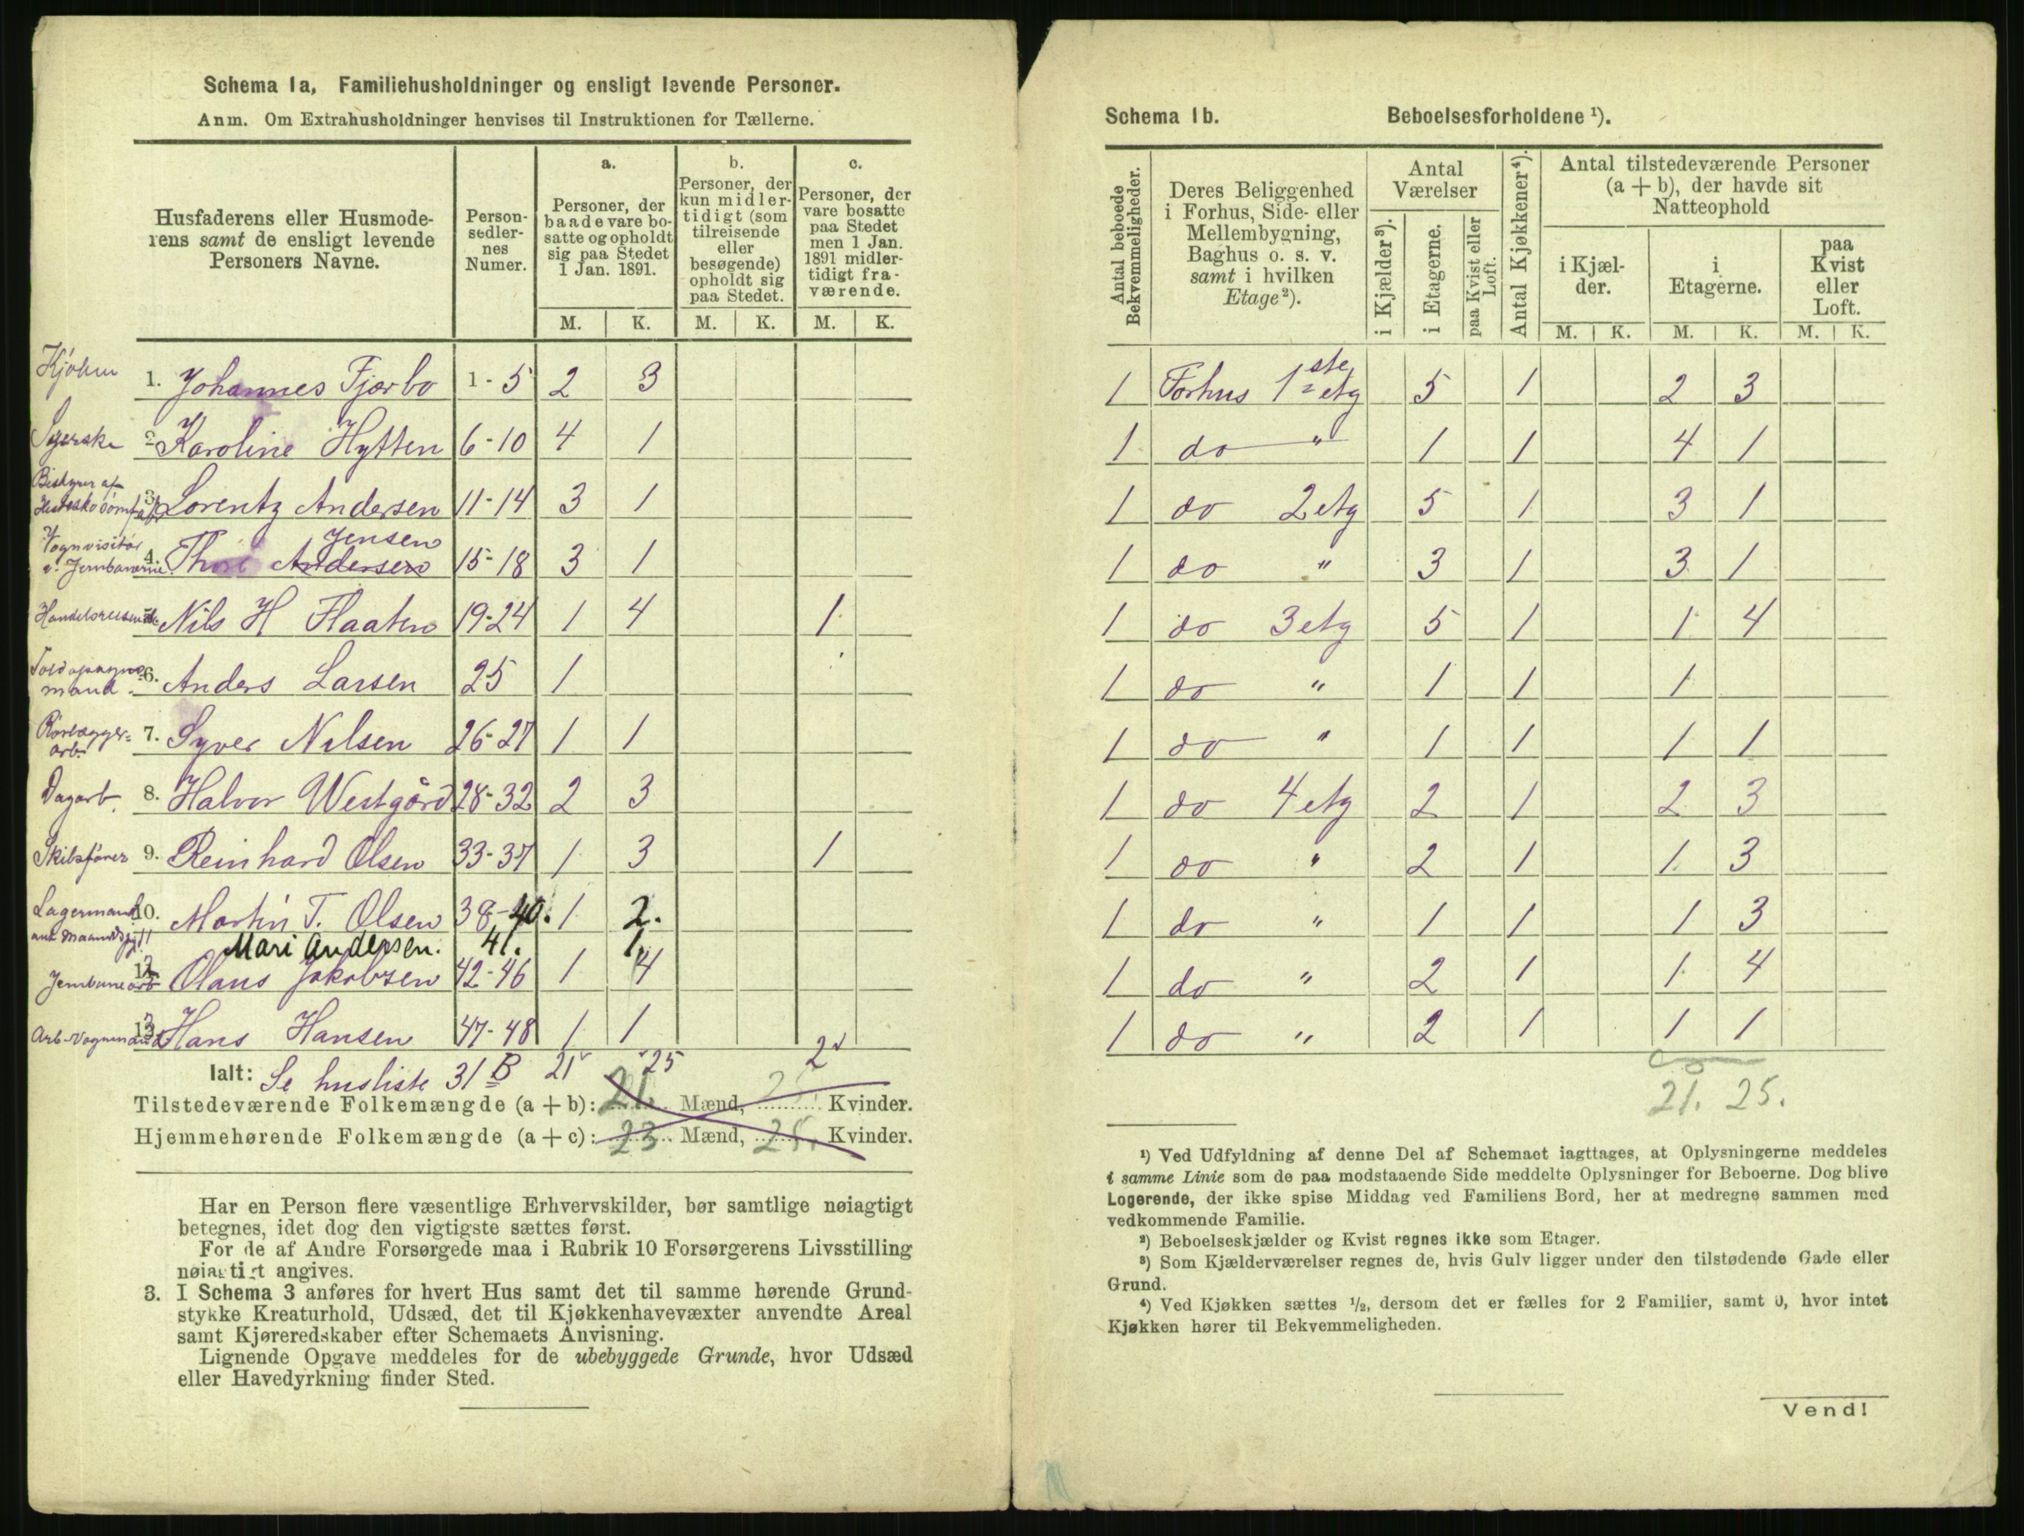 Schema 1a, Familiehusholdninger og ensligt levende Personer.
Anm. Om Extrahusholdninger henvises til Instruktionen for Tællerne.
Husfaderens eller Husmode-
rens samt de ensligt levende
Personers Navne.
Person-
sedler-
nes
Numer.
a.
Personer, der
baade vare bo-
satte og opholdt
sig paa Stedet
1 Jan. 1891.
b.
Personer, der
kun midler-
tidigt (som
tilreisende
eller
besøgende)
opholdt sig
paa Stedet.
c.
Personer, der
vare bosatte
paa Stedet
men 1 Jan.
1891 midler-
tidigt fra-
værende.
M. K. M. K. M. K.
1. Johannes Fjærbo 1-5 2 3
Syerske 2 Karoline Hytten 6-10 4 1
Bestyrer af
3 Lorentz Andersen 11-14 3 1
Jensen
Vognvisitør
v. Jernbanerne 4. Thor Andersen 15-18 3 1
Nils H Flaaten 19-24 1 4 1
mand 6. Anders Larsen 25 1
arb. 7. Syver Nilsen 26-27 1 1
Dagarb. 8. Halvor Westgård 28-32 2 3
Skibsfører 9. Reinhard Olsen 33-37 1 3 1
Lagermand 10. Martin T. Olsen 38-40. 1 2.
Mari Andersen. 41. 1.
Jernbanearb Olaus Jakobsen 42-46 1 4
Hans Hansen 47-48 1 1
Ialt: Se husliste 31 B 21 25 2
Tilstedeværende Folkemængde (a + b): 21. Mænd, 25. Kvinder.
Hjemmehørende Folkemængde (a + c): 23 Mænd, 25. Kvinder.
Har en Person flere væsentlige Erhvervskilder, bør samtlige nøiagtigt
betegnes, idet dog den vigtigste sættes først.
For de af Andre Forsørgede maa i Rubrik 10 Forsørgerens Livsstilling
nøiagtigt angives.
3. I Schema 3 anføres for hvert Hus samt det til samme hørende Grund-
stykke Kreaturhold, Udsæd, det til Kjøkkenhavevæxter anvendte Areal
samt Kjøreredskaber efter Schemaets Anvisning.
Lignende Opgave meddeles for de ubebyggede Grunde, hvor Udsæd
eller Havedyrkning finder Sted.
Schema 1b. Beboelsesforholdene ¹).
Antal beboede
Bekvemmeligheder.
Deres Beliggenhed
i Forhus, Side- eller
Mellembygning,
Baghus o. s. v.
samt i hvilken
Etage ²).
Antal
Værelser
i Kjælder ³).
i Etagerne.
paa Kvist eller
Loft.
Antal Kjøkkener ⁴).
Antal tilstedeværende Personer
(a + b), der havde sit
Natteophold
i Kjæl-
der.
i
Etagerne.
paa
Kvist
eller
Loft.
M. K. M. K. M. K.
1 Forhus 1ste etg 5 1 2 3
1 do " 1 1 4 1
1 do 2 etg 5 1 3 1
1 do " 3 1 3 1
1 do 3 etg 5 1 1 4
1 do " 1 1 1
1 do " 1 1 1 1
1 do 4 etg 2 1 2 3
1 do " 2 1 1 3
1 do " 1 1 1 3
1 do " 2 1 1 4
1 do " 2 1 1 1
21. 25.
¹) Ved Udfyldning af denne Del af Schemaet iagttages, at Oplysningerne meddeles
i samme Linie som de paa modstaaende Side meddelte Oplysninger for Beboerne. Dog blive
Logerende, der ikke spise Middag ved Familiens Bord, her at medregne sammen med
vedkommende Familie.
²) Beboelseskjælder og Kvist regnes ikke som Etager.
³) Som Kjælderværelser regnes de, hvis Gulv ligger under den tilstødende Gade eller
Grund.
⁴) Ved Kjøkken sættes ½, dersom det er fælles for 2 Familier, samt 0, hvor intet
Kjøkken hører til Bekvemmeligheden.
Vend!